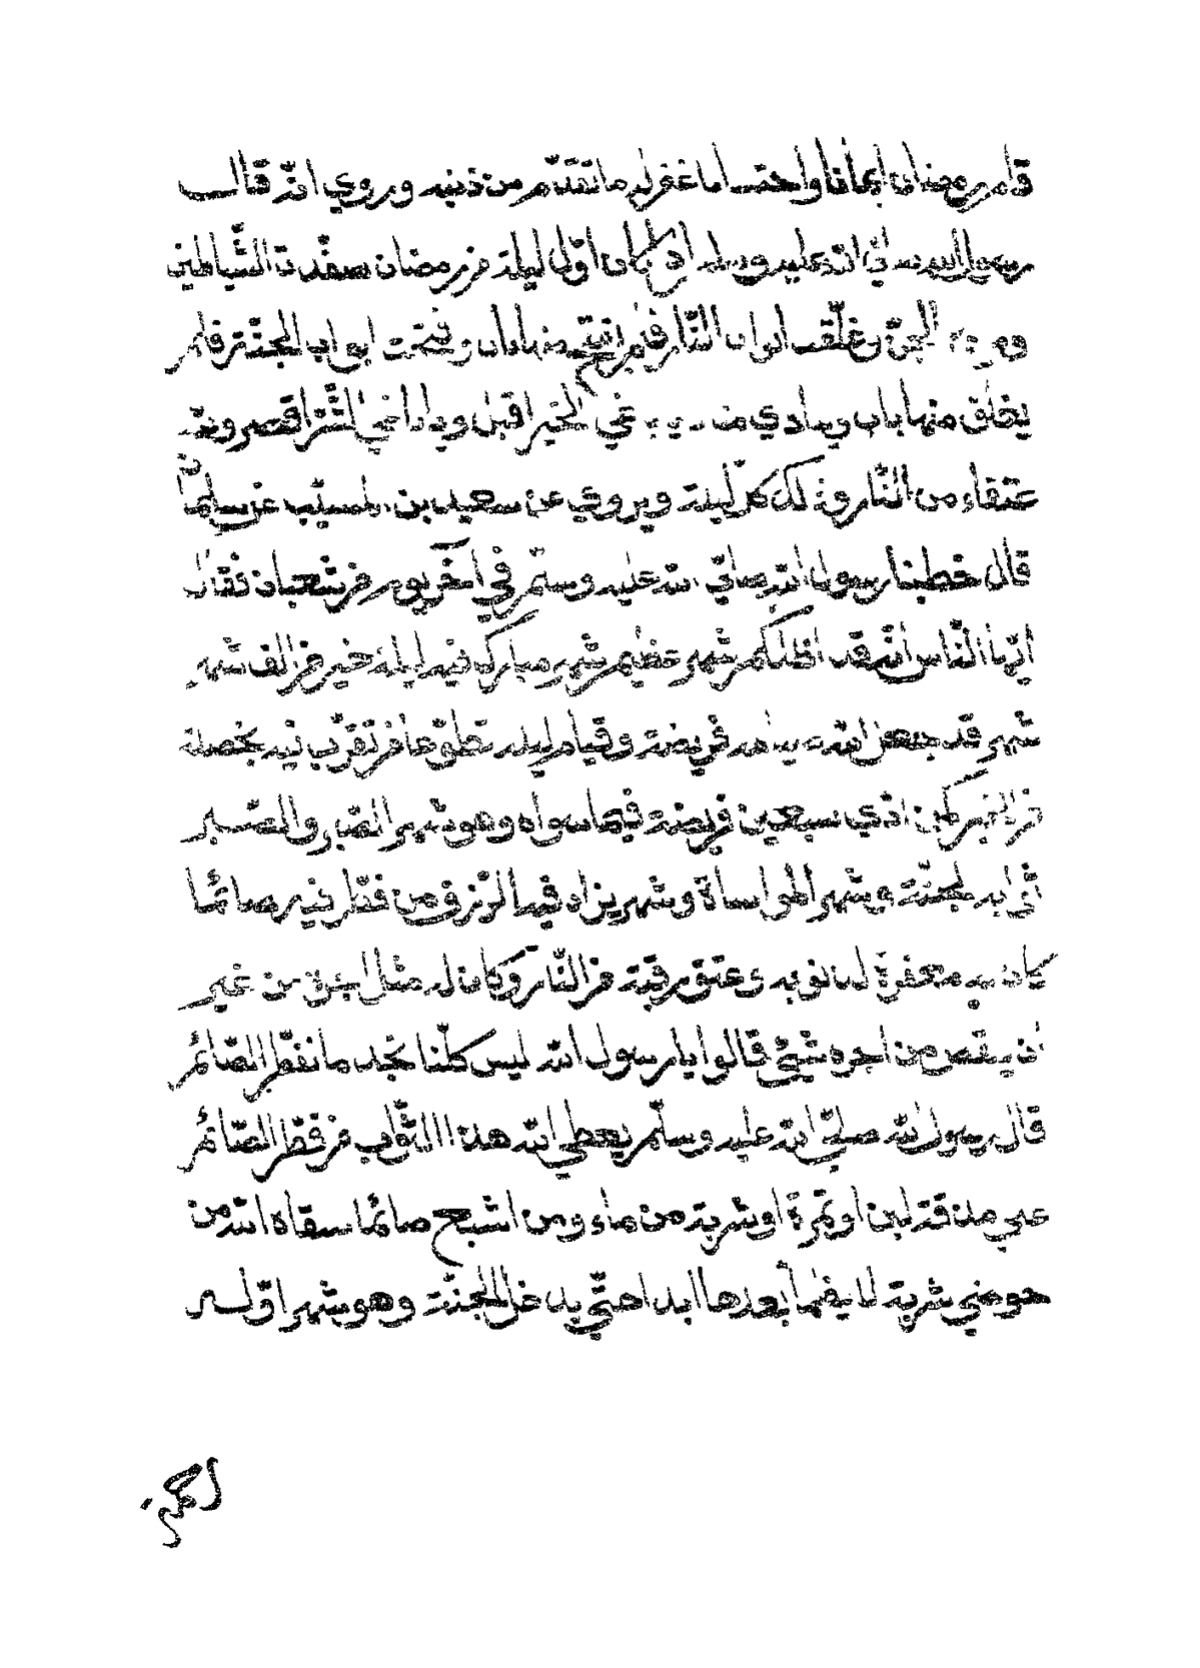 قام رمضان ايمانا واحتسابا غفر له ما تقدّم من ذنبه وروي انّه قال
رسول الله صلى الله عليه وسلم اذا كان اوّل ليلة من رمضان صفّدت الشّياطين
الجنّ وغلّقت ابواب النّار فلم يفتح منها باب وفتحت ابواب الجنّة فلم
يغلق منها باب وينادي مناد الخير اقبل ويا باغي الشّرّ اقصر ولله
عتقاء من النّار وذلك كلّ ليلة ويروي عن سعيد بن المسيّب عن سلمان
قال خطبنا رسول الله صلّى الله عليه وسلّم في آخر يوم من شعبان فقال
ايّها النّاس انّه قد اظلكم شهر عظيم شهر مبارك فيه ليلة خير من الف شهر
شهر قد جعل الله صيامه فريضة وقيام ليله تطوّعا من تقرّب فيه بخصلة
من الخير كمن ادّي سبعين فريضة فيما سواه وهو شهر الصّبر والصّبر
ثوابه الجنّة وشهر المواساة وشهر يزاد فيه الرّزق ومن فطّر فيه صائما
كان به مغفرة لذنوبه وعتق رقبة من النّار وكان له مثل اجره من غير
ان ينقص من اجره شيئ قالوا يا رسول الله ليس كلّنا نجد ما نفطّر الصّائم
قال رسول الله صلّي الله عليه وسلّم يعطي الله هذا الثّواب من فطّر الصّائم
علي مذقة لبن او تمرة او شربة من ماء ومن اشبع صائما سقاه الله من
حوضي شربة لا يظمأ بعدها ابدا حتّي يدخل الجنّة وهو شهر اوّله